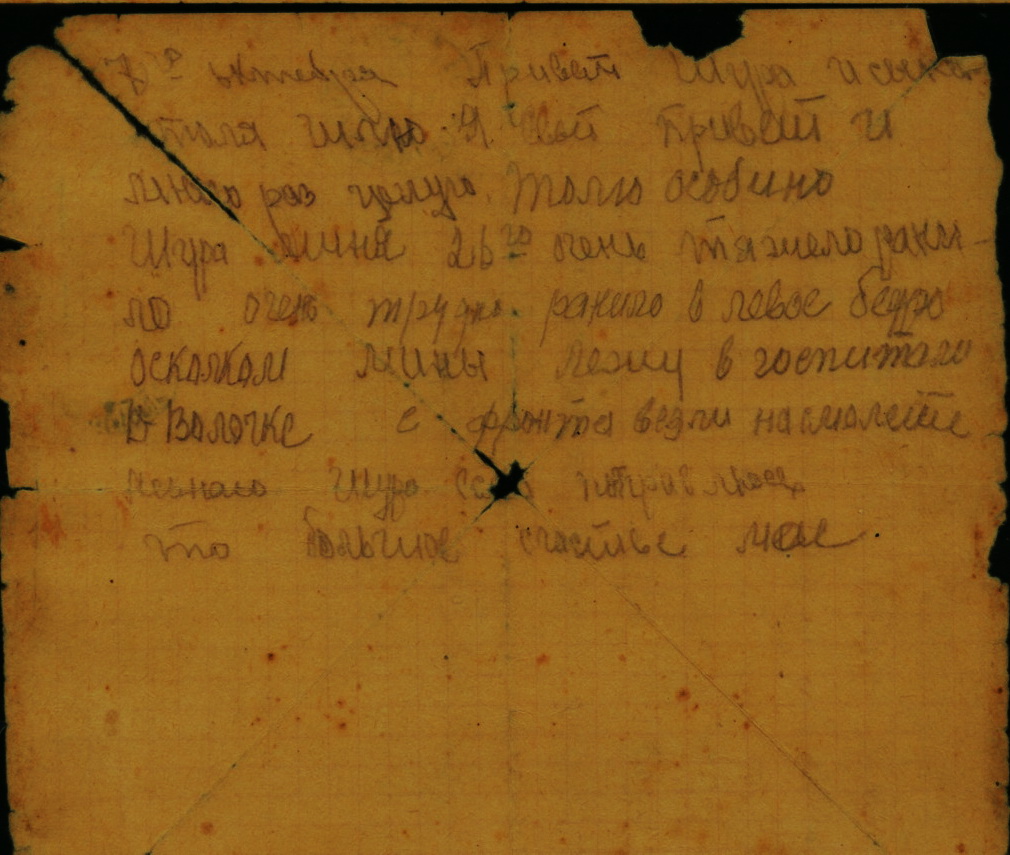 го октября Привет Шура и
толя шлю Я свой привет и
много раз целую. Толю особино
Шура миня 26го очень тяжело рани-
ло очень трудно ранило в левое бедро
осколком мины лежу в госпитале
В Волочке с фронта везли на
Шура если поправлюсь
то большое счастье мое